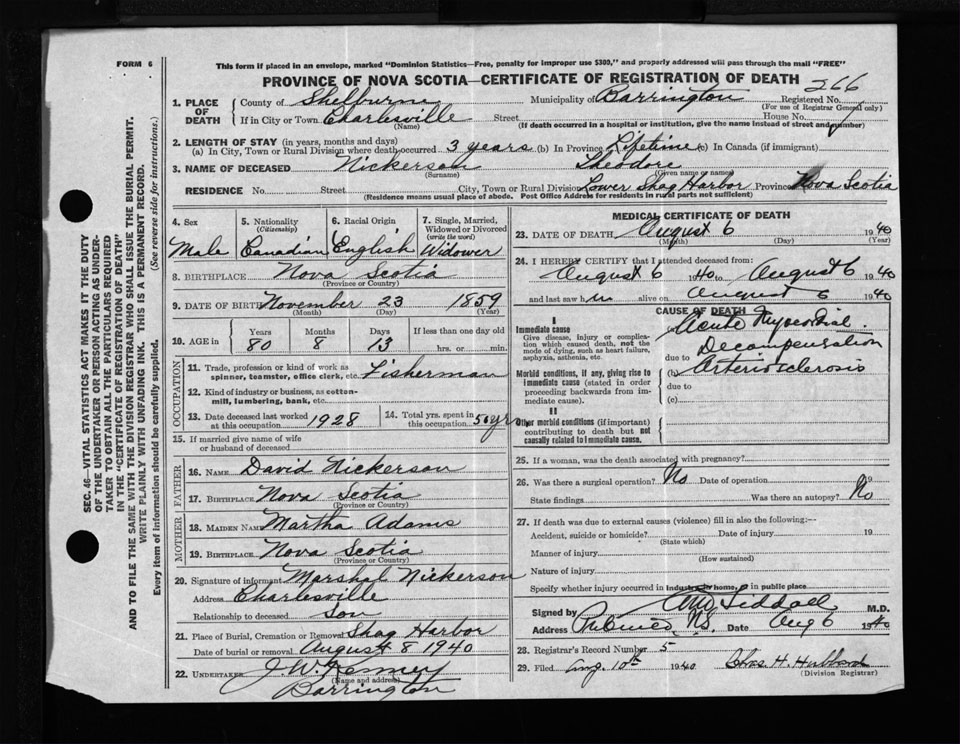 FORM 6
This form if placed in an envelope, marked "Dominion Statistics—Free, penalty for improper use $300," and properly addressed will pass through the mail "FREE"
PROVINCE OF NOVA SCOTIA—CERTIFICATE OF REGISTRATION OF DEATH
266
1. PLACE OF DEATH County of Shelburne Municipality of Barrington Registered No.
(For use of Registrar General only)
If in City or Town Charlesville Street House No.
(Name) (If death occurred in a hospital or institution, give the name instead of street and number)
2. LENGTH OF STAY (in years, months and days)
(a) In City, Town or Rural Division where death occurred 3 years (b) In Province Lifetime (c) In Canada (if immigrant)
3. NAME OF DECEASED Nickerson Theodore
(Surname) (Given name or names)
RESIDENCE No. Street City, Town or Rural Division Lower Shag Harbor Province Nova Scotia
(Residence means usual place of abode. Post Office Address for residents in rural parts not sufficient)
4. Sex Male
5. Nationality (Citizenship) Canadian
6. Racial Origin English
7. Single, Married, Widowed or Divorced (write the word) Widower
8. BIRTHPLACE Nova Scotia
(Province or Country)
9. DATE OF BIRTH November 23 1859
(Month) (Day) (Year)
10. AGE in Years 80 Months 8 Days 13 If less than one day old
hrs. or min.
OCCUPATION
11. Trade, profession or kind of work as spinner, teamster, office clerk, etc. Fisherman
12. Kind of industry or business, as cotton-mill, lumbering, bank, etc.
13. Date deceased last worked at this occupation 1928
14. Total yrs. spent in this occupation 50 yrs
15. If married give name of wife or husband of deceased
FATHER
16. NAME David Nickerson
17. BIRTHPLACE Nova Scotia
(Province or Country)
MOTHER
18. MAIDEN NAME Martha Adams
19. BIRTHPLACE Nova Scotia
(Province or Country)
20. Signature of informant Marshal Nickerson
Address Charlesville
Relationship to deceased Son
21. Place of Burial, Cremation or Removal Shag Harbor
Date of burial or removal August 8 1940
22. UNDERTAKER J. W. Kenney
(Name and address)
Barrington
MEDICAL CERTIFICATE OF DEATH
23. DATE OF DEATH August 6 1940
(Month) (Day) (Year)
24. I HEREBY CERTIFY that I attended deceased from:
August 6 1940 to August 6 1940
and last saw him alive on August 6 1940
CAUSE OF DEATH
I
Immediate cause
Give disease, injury or complication which caused death, not the mode of dying, such as heart failure, asphyxia, asthenia, etc.
Acute Myocardial
Decompensation
due to
Morbid conditions, if any, giving rise to immediate cause (stated in order proceeding backwards from immediate cause).
(b) Arteriosclerosis
due to
(c)
II
Other morbid conditions (if important) contributing to death but not causally related to immediate cause.
25. If a woman, was the death associated with pregnancy?
26. Was there a surgical operation? No Date of operation 19
State findings Was there an autopsy? No
27. If death was due to external causes (violence) fill in also the following:—
Accident, suicide or homicide? Date of injury 19
(State which)
Manner of injury
(How sustained)
Nature of injury
Specify whether injury occurred in industry, in home, or in public place
Signed by Siddall M.D.
Address N.S. Date Aug 6 1940
28. Registrar's Record Number 5
29. Filed Aug. 10th 1940 Chas. H. Hubbard
(Division Registrar)
SEC. 46—VITAL STATISTICS ACT MAKES IT THE DUTY
OF THE UNDERTAKER OR PERSON ACTING AS UNDER-
TAKER TO OBTAIN ALL THE PARTICULARS REQUIRED
IN THE "CERTIFICATE OF REGISTRATION OF DEATH"
AND TO FILE THE SAME WITH THE DIVISION REGISTRAR WHO SHALL ISSUE THE BURIAL PERMIT.
WRITE PLAINLY WITH UNFADING INK. THIS IS A PERMANENT RECORD.
Every item of information should be carefully supplied. (See reverse side for instructions.)